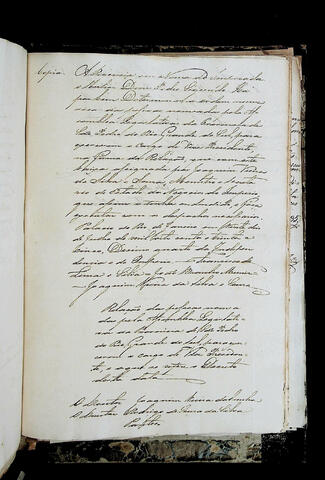 Copia. A Regencia em Nome do Imperador
o Senhor Dom Pedro Segundo Ha
por bem Determinar a ordem nume
rica das pessoas nomeadas pela As
semblea Legislativa da Provincia de
São Pedro do Rio Grande do Sul, para
exercerem o cargo de Vice Presidente,
na forma da Relação, que com este
baixa assignada por Joaquim Vieira
da Silva e Souza, Ministro e Secreta
rio de Estado dos Negocios do Imperio
que assim o tenha entendido, e faça
expedir com os despachos necessarios.
Palacio do Rio de Janeiro em trinta
de Junho de mil oito centos e trinta e
cinco, Decimo quarto da Indepen
dencia e do Imperio. Francisco de
Lima e Silva = João Braulio Muniz =
Joaquim Vieira da Silva e Souza.
Relação das pessoas nomea
das pela Assemblea Legislati
va da Provincia de São Pedro
do Rio Grande do Sul, para exer
cerem o cargo de Vice Presiden
te, a qual se refere o Decreto
desta data
O Doutor Joaquim Vieira da Cunha
O Doutor Rodrigo de Souza da Silva
Pontes